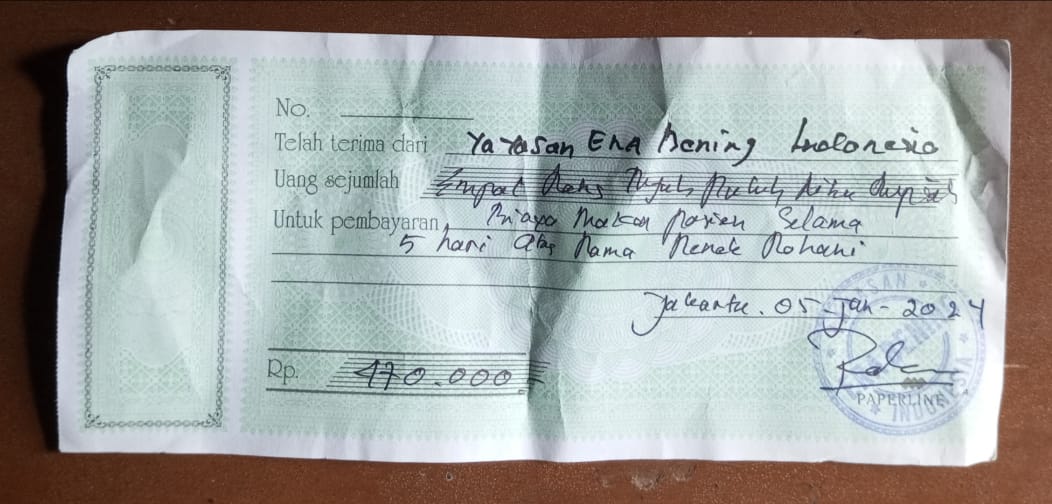 No.
Telah terima dari Yayasan ERA Bening Indonesia
Uang sejumlah Empat Ratus Tujuh Puluh Ribu Rupiah
Untuk pembayaran Biaya Makan pasien Selama
5 hari Atas Nama Nenek Rohani
Jakarta. 05 - Jan - 2024
Rp. 470.000
PAPERLINE
INDONESIA